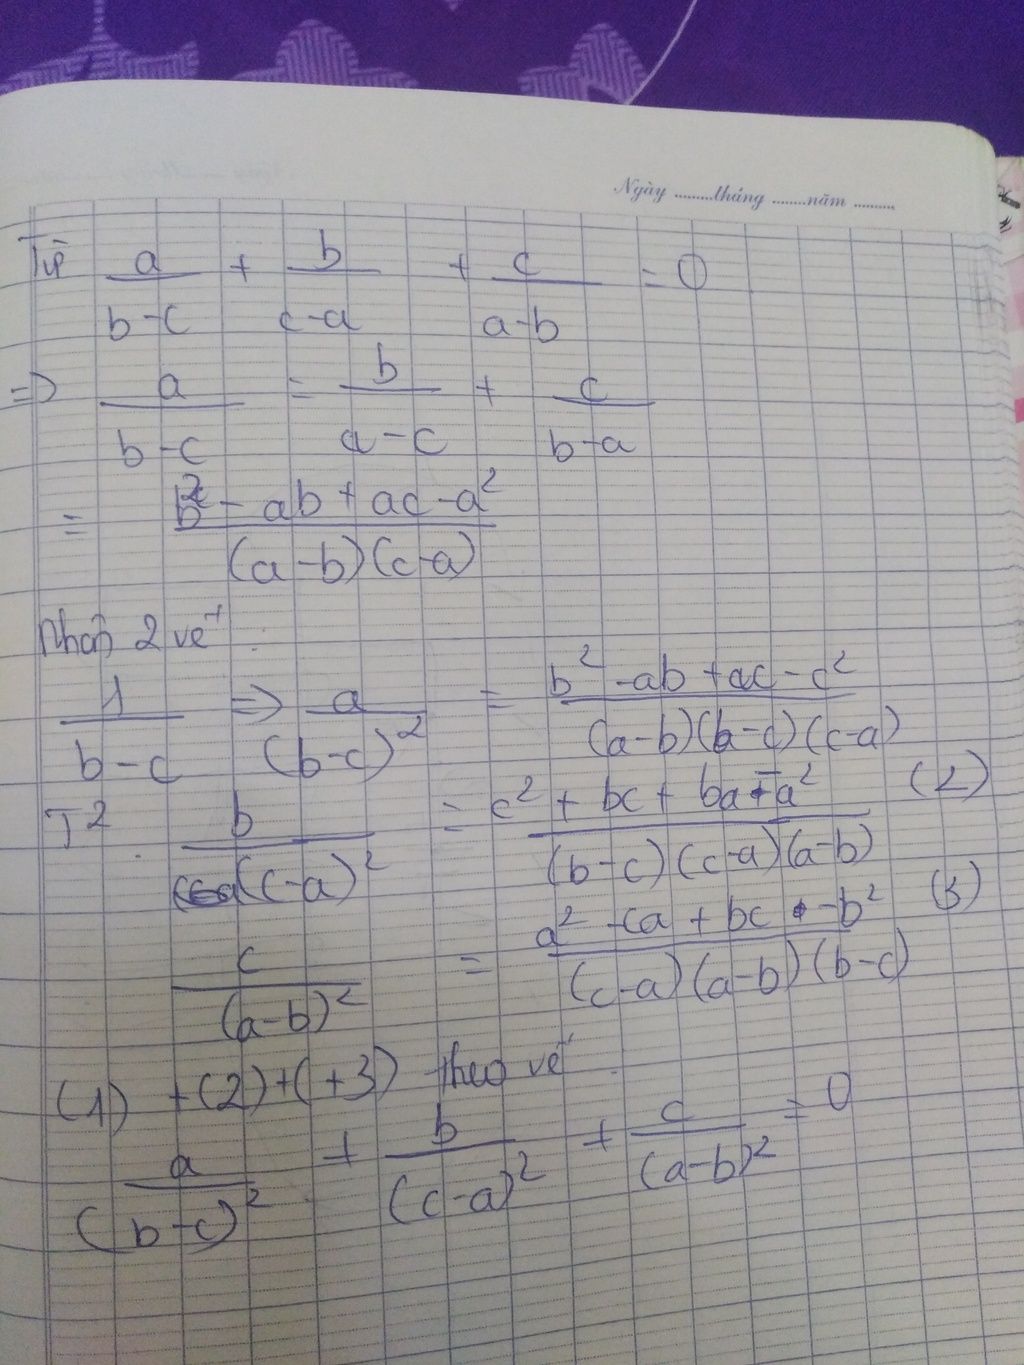 Ngày .........tháng .......năm .........
Từ a/(b-c) + b/(c-a) + c/(a-b) = 0
=> a/(b-c) = b/(a-c) + c/(b-a)
= (b² - ab + ac - a²)/((a-b)(c-a))
Nhân 2 vế
1/(b-c) => a/(b-c)² = (b² - ab + ac - c²)/((a-b)(b-c)(c-a))
T² b/(c-a)² = (c² + bc + ba - a²)/((b-c)(c-a)(a-b)) (2)
c/(a-b)² = (a² - ca + bc - b²)/((c-a)(a-b)(b-c)) (3)
(1) + (2) + (+3) theo vế
a/(b-c)² + b/(c-a)² + c/(a-b)² = 0